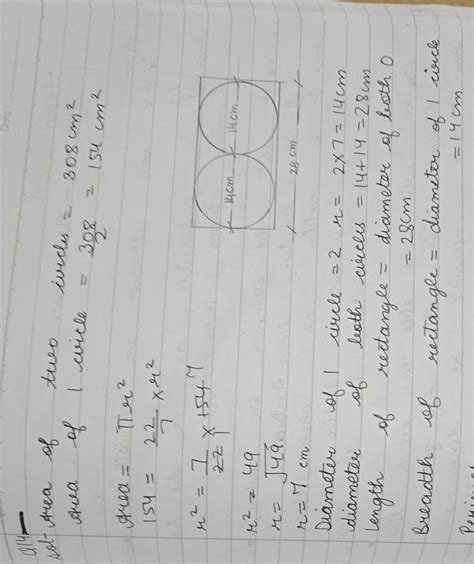 Q14
sol- Area of two circles = 308 cm²
Area of 1 circle = 308/2 = 154 cm²
Area = πr²
154 = 22/7 × r²
r² = 7/22 × 154 7
1
r² = 49
r = √49
r = 7 cm
14cm 14cm
28 cm
Diameter of 1 circle = 2 r = 2×7 = 14 cm
diameter of both circles = 14+14 = 28 cm
Length of rectangle = diameter of both O
= 28cm
Breadth of rectangle = diameter of 1 circle
= 14 cm